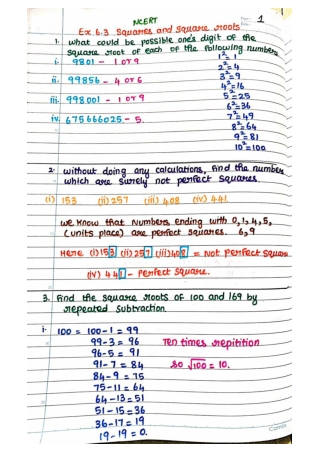 NCERT
1
Ex. 6.3 Squares and Square roots
1. What could be possible one's digit of the
square root of each of the following numbers
i. 9801 - 1 or 9
ii. 99856 - 4 or 6
iii. 998001 - 1 or 9
iv. 675666025 - 5.
1² = 1
2² = 4
3² = 9
4² = 16
5² = 25
6² = 36
7² = 49
8² = 64
9² = 81
10² = 100
2. without doing any calculations, find the numbers
which are surely not perfect squares.
(i) 153 (ii) 257 (iii) 408 (iv) 441
We know that numbers ending with 0,1,4,5,
(units place) are perfect squares. 6,9
Here (i) 153 (ii) 257 (iii) 408 = Not perfect square
(iv) 441 - perfect square.
3. Find the square roots of 100 and 169 by
repeated Subtraction.
i. 100 = 100-1 = 99
99-3 = 96
96-5 = 91
91-7 = 84
84-9 = 75
75-11 = 64
64-13 = 51
51-15 = 36
36-17 = 19
19-19 = 0.
Ten times repitition
So √100 = 10.